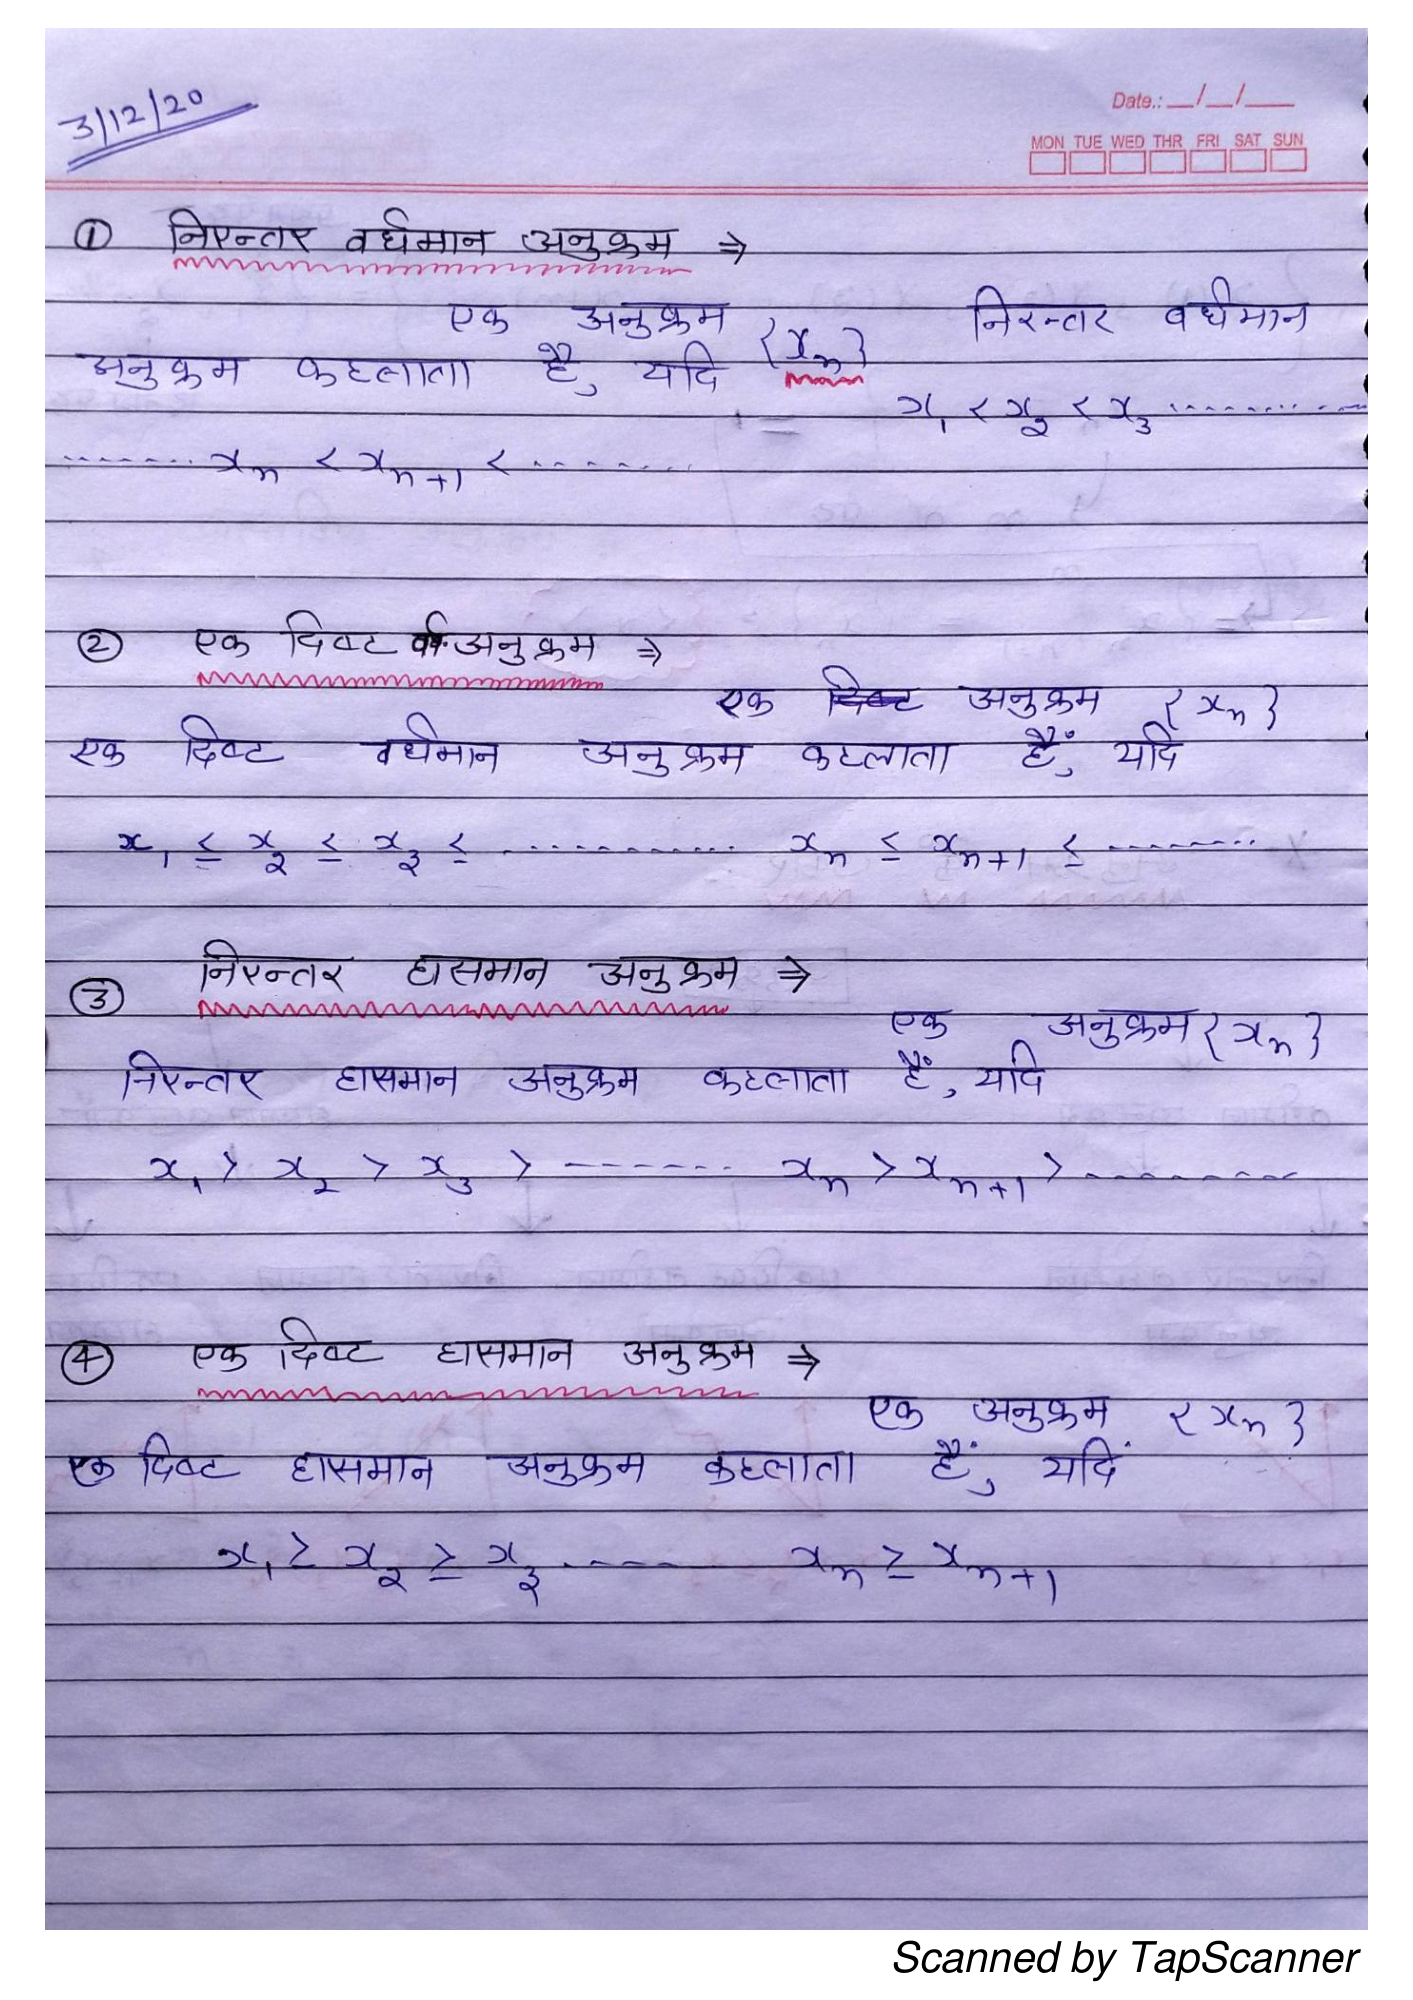 3/12/20
Date.: __/__/___
MON TUE WED THR FRI SAT SUN
① निरन्तर वर्धमान अनुक्रम ⇒
एक अनुक्रम {xₙ} निरन्तर वर्धमान
अनुक्रम कहलाता है, यदि
x₁ < x₂ < x₃ ............
........ xₙ < xₙ₊₁ < ........
② एक दिष्ट अनुक्रम ⇒
एक दिष्ट अनुक्रम {xₙ}
एक दिष्ट वर्धमान अनुक्रम कहलाता हैं, यदि
x₁ ≤ x₂ ≤ x₃ ≤ ............. xₙ ≤ xₙ₊₁ ≤ .........
③ निरन्तर हासमान अनुक्रम ⇒
एक अनुक्रम {xₙ}
निरन्तर हासमान अनुक्रम कहलाता हैं, यदि
x₁ > x₂ > x₃ > ------- xₙ > xₙ₊₁ > ---------
④ एक दिष्ट हासमान अनुक्रम ⇒
एक अनुक्रम {xₙ}
एक दिष्ट हासमान अनुक्रम कहलाता हैं, यदिं
x₁ ≥ x₂ ≥ x₃ ----- xₙ ≥ xₙ₊₁
Scanned by TapScanner